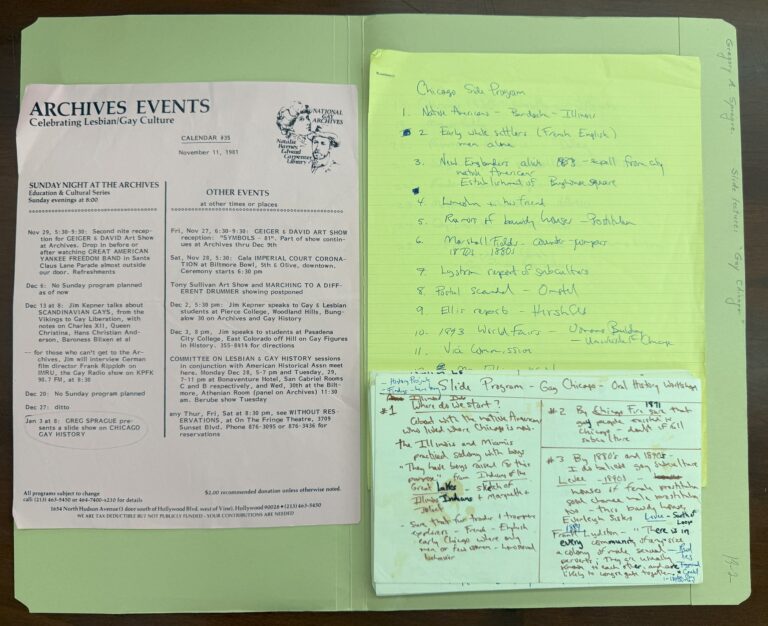 ARCHIVES EVENTS
Celebrating Lesbian/Gay Culture
NATIONAL
GAY
ARCHIVES
Natalie
Barney
Edward
Carpenter
Library
CALENDAR #35
November 11, 1981
SUNDAY NIGHT AT THE ARCHIVES
Education & Cultural Series
Sunday evenings at 8:00
Nov 29, 5:30-9:30: Second nite recep-
tion for GEIGER & DAVID Art Show
at Archives. Drop in before or
after watching GREAT AMERICAN
YANKEE FREEDOM BAND in Santa
Claus Lane Parade almost outside
our door. Refreshments
Dec 6: No Sunday program planned
as of now
Dec 13 at 8: Jim Kepner talks about
SCANDINAVIAN GAYS, from the
Vikings to Gay Liberation, with
notes on Charles XII, Queen
Christina, Hans Christian And-
erson, Baroness Blixen et al
-- for those who can't get to the Ar-
chives, Jim will interview German
film director Frank Ripploh on
IMRU, the Gay Radio show on KPFK
90.7 FM, at 8:30
Dec 20: No Sunday program planned
Dec 27: ditto
Jan 3 at 8: GREG SPRAGUE pre-
sents a slide show on CHICAGO
GAY HISTORY
OTHER EVENTS
at other times or places
Fri, Nov 27, 6:30-9:30: GEIGER & DAVID ART SHOW
reception: "SYMBOLS - 81". Part of show contin-
ues at Archives thru Dec 9th
Sat, Nov 28, 5:30: Gala IMPERIAL COURT CORONA-
TION at Biltmore Bowl, 5th & Olive, downtown,
Ceremony starts 6:30 pm
Tony Sullivan Art Show and MARCHING TO A DIFF-
ERENT DRUMMER showing postponed
Dec 2, 5:30 pm: Jim Kepner speaks to Gay & Lesbian
students at Pierce College, Woodland Hills, Bung-
alow 30 on Archives and Gay History
Dec 3, 8 pm, Jim speaks to students at Pasadena
City College, East Colorado off Hill on Gay Figures
in History. 355-8414 for directions
COMMITTEE ON LESBIAN & GAY HISTORY sessions
in conjunction with American Historical Assn meet
here. Monday Dec 28, 5-7 pm and Tuesday, 29,
7-11 pm at Bonaventure Hotel, San Gabriel Rooms
C and B respectively, and Wed, 30th at the Bilt-
more, Athenian Room (panel on Archives) 11:30
am. Berube show Tuesday
any Thur, Fri, Sat at 8:30 pm, see WITHOUT RES-
ERVATIONS, at On The Fringe Theatre, 3709
Sunset Blvd. Phone 876-3095 or 876-3436 for
reservations
All programs subject to change
call (213) 463-5450 or 464-7400 x230 for details
$2.00 recommended donation unless otherwise noted.
1654 North Hudson Avenue (1 door south of Hollywood Blvd, west of Vine). Hollywood 90026 • (213) 463-5450
WE ARE TAX DEDUCTIBLE BUT NOT PUBLICLY FUNDED - YOUR CONTRIBUTIONS ARE NEEDED
Chicago Slide Program
1. Native Americans - Berdache - Illinois
2 Early white settlers (French English)
men alone
3. New Englanders
native American
Establishment of Bughouse square
4. Lincoln + his friend
5. Report of bawdy houses - Prostitution
6. Marshall Fields - counter-jumper
1870s 1880s
7 Lydston report of subculture
8. Postal scandal
9 Ellis report - Hirschfeld
10. 1893 World Fairs - Womans Building
11. Vice Commission
Slide Program - Gay Chicago - Oral History Workshop
Where do we start?
#1
About with the native American
who lived where Chicago is now.
the Illinois and Miamis
practiced sodomy with boys
"They have boys raised for this
purpose" from Indians of the
Great Lakes - sketch of
Illinois Indians + Marquette +
Joliet
- French - English
early Chicago where only
men or few women - homosexual
behavior
#2 By Chicago Fire 1871 sure that
gay people existed in
Chicago - doubt if full
subculture
#3 By 1880's and 1890's -
I do believe gay subculture
Levee - 1890s
houses of female prostitution
some chance male prostitution
too - this bawdy house,
Everleigh Sisters Levee - South of Loop
1889
Frank Lydston - "There is in
every community of any size
a colony of male sexual
perverts; They are usually
known to each other, and are
likely to congregate together."
Gregory A. Sprague. Slide features: "Gay Chicago"